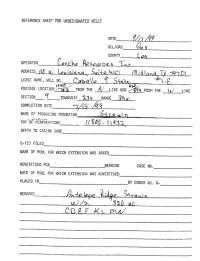 REFERENCE SHEET FOR UNDESIGNATED WELLS
DATE 9/2/99
OIL/GAS Gas
COUNTY Lea
OPERATOR Concho Resources Inc
ADDRESS 110 W Louisiana, Suite 410 Midland Tx 79701
LEASE NAME, WELL NO. Caballo 9 State #1-E
FOOTAGE LOCATION FROM THE N LINE AND FROM THE W LINE
SECTION 9 TOWNSHIP 23s RANGE 34e
COMPLETION DATE 7/15/99
NAME OF PRODUCING FORMATION Strawn
TOP OF PERFORATIONS 11800-11932
DEPTH TO CASING SHOE
C-123 FILED
NAME OF POOL FOR WHICH EXTENSION WAS ASKED
NAME OF POOL FOR WHICH EXTENSION WAS ADVERTISED
ADVERTISED FOR HEARING CASE NO.
NAME OF POOL FOR WHICH EXTENSION WAS ADVERTISED
PLACED IN BY ORDER NO. R-
REMARKS Antelope Ridge Strawn
W/2 320 ac